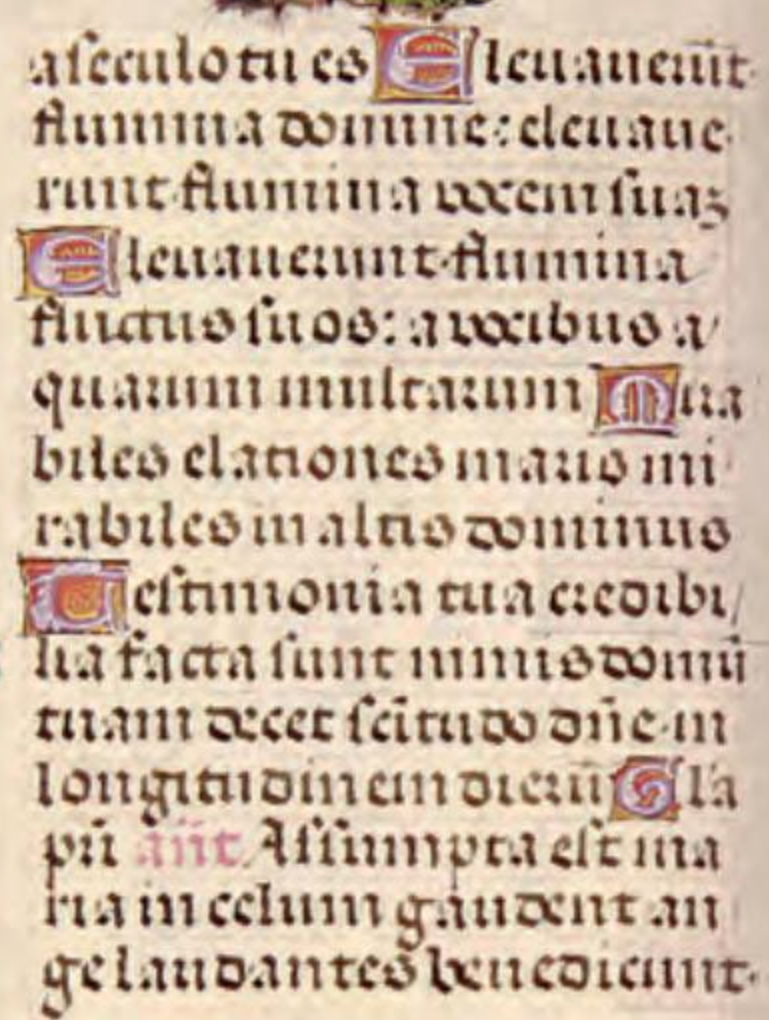 a seculo tu es Eleuauerūt
flumina domine: eleuaue
runt flumina uocem suaʒ
Eleuauerunt flumina
fluctus suos: a uocibus a
quarum multarum Mira
biles elationes maris mi
rabilis in altis dominus
Testimonia tua credibi
lia facta sunt nimis domū
tuam decet scītudo dn̄e in
longitudinem dierū Gl'a
pri̅ an̄t Assumpta est ma
ria in celum gaudent an
ge laudantes benedicunt